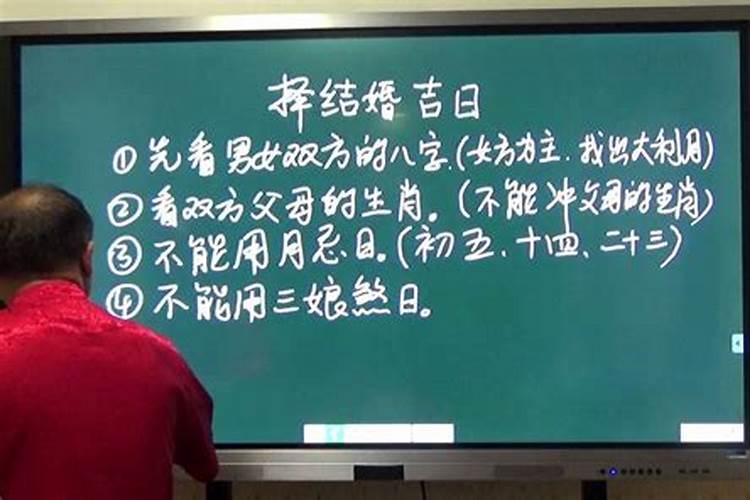 择结婚吉日
①先看男女双方的八字.(女方为主.找出大利月)
②看双方父母的生肖。(不能冲父母的生肖)
③不能用月忌日。(初五、十四、二十三)
④不能用三娘煞日。